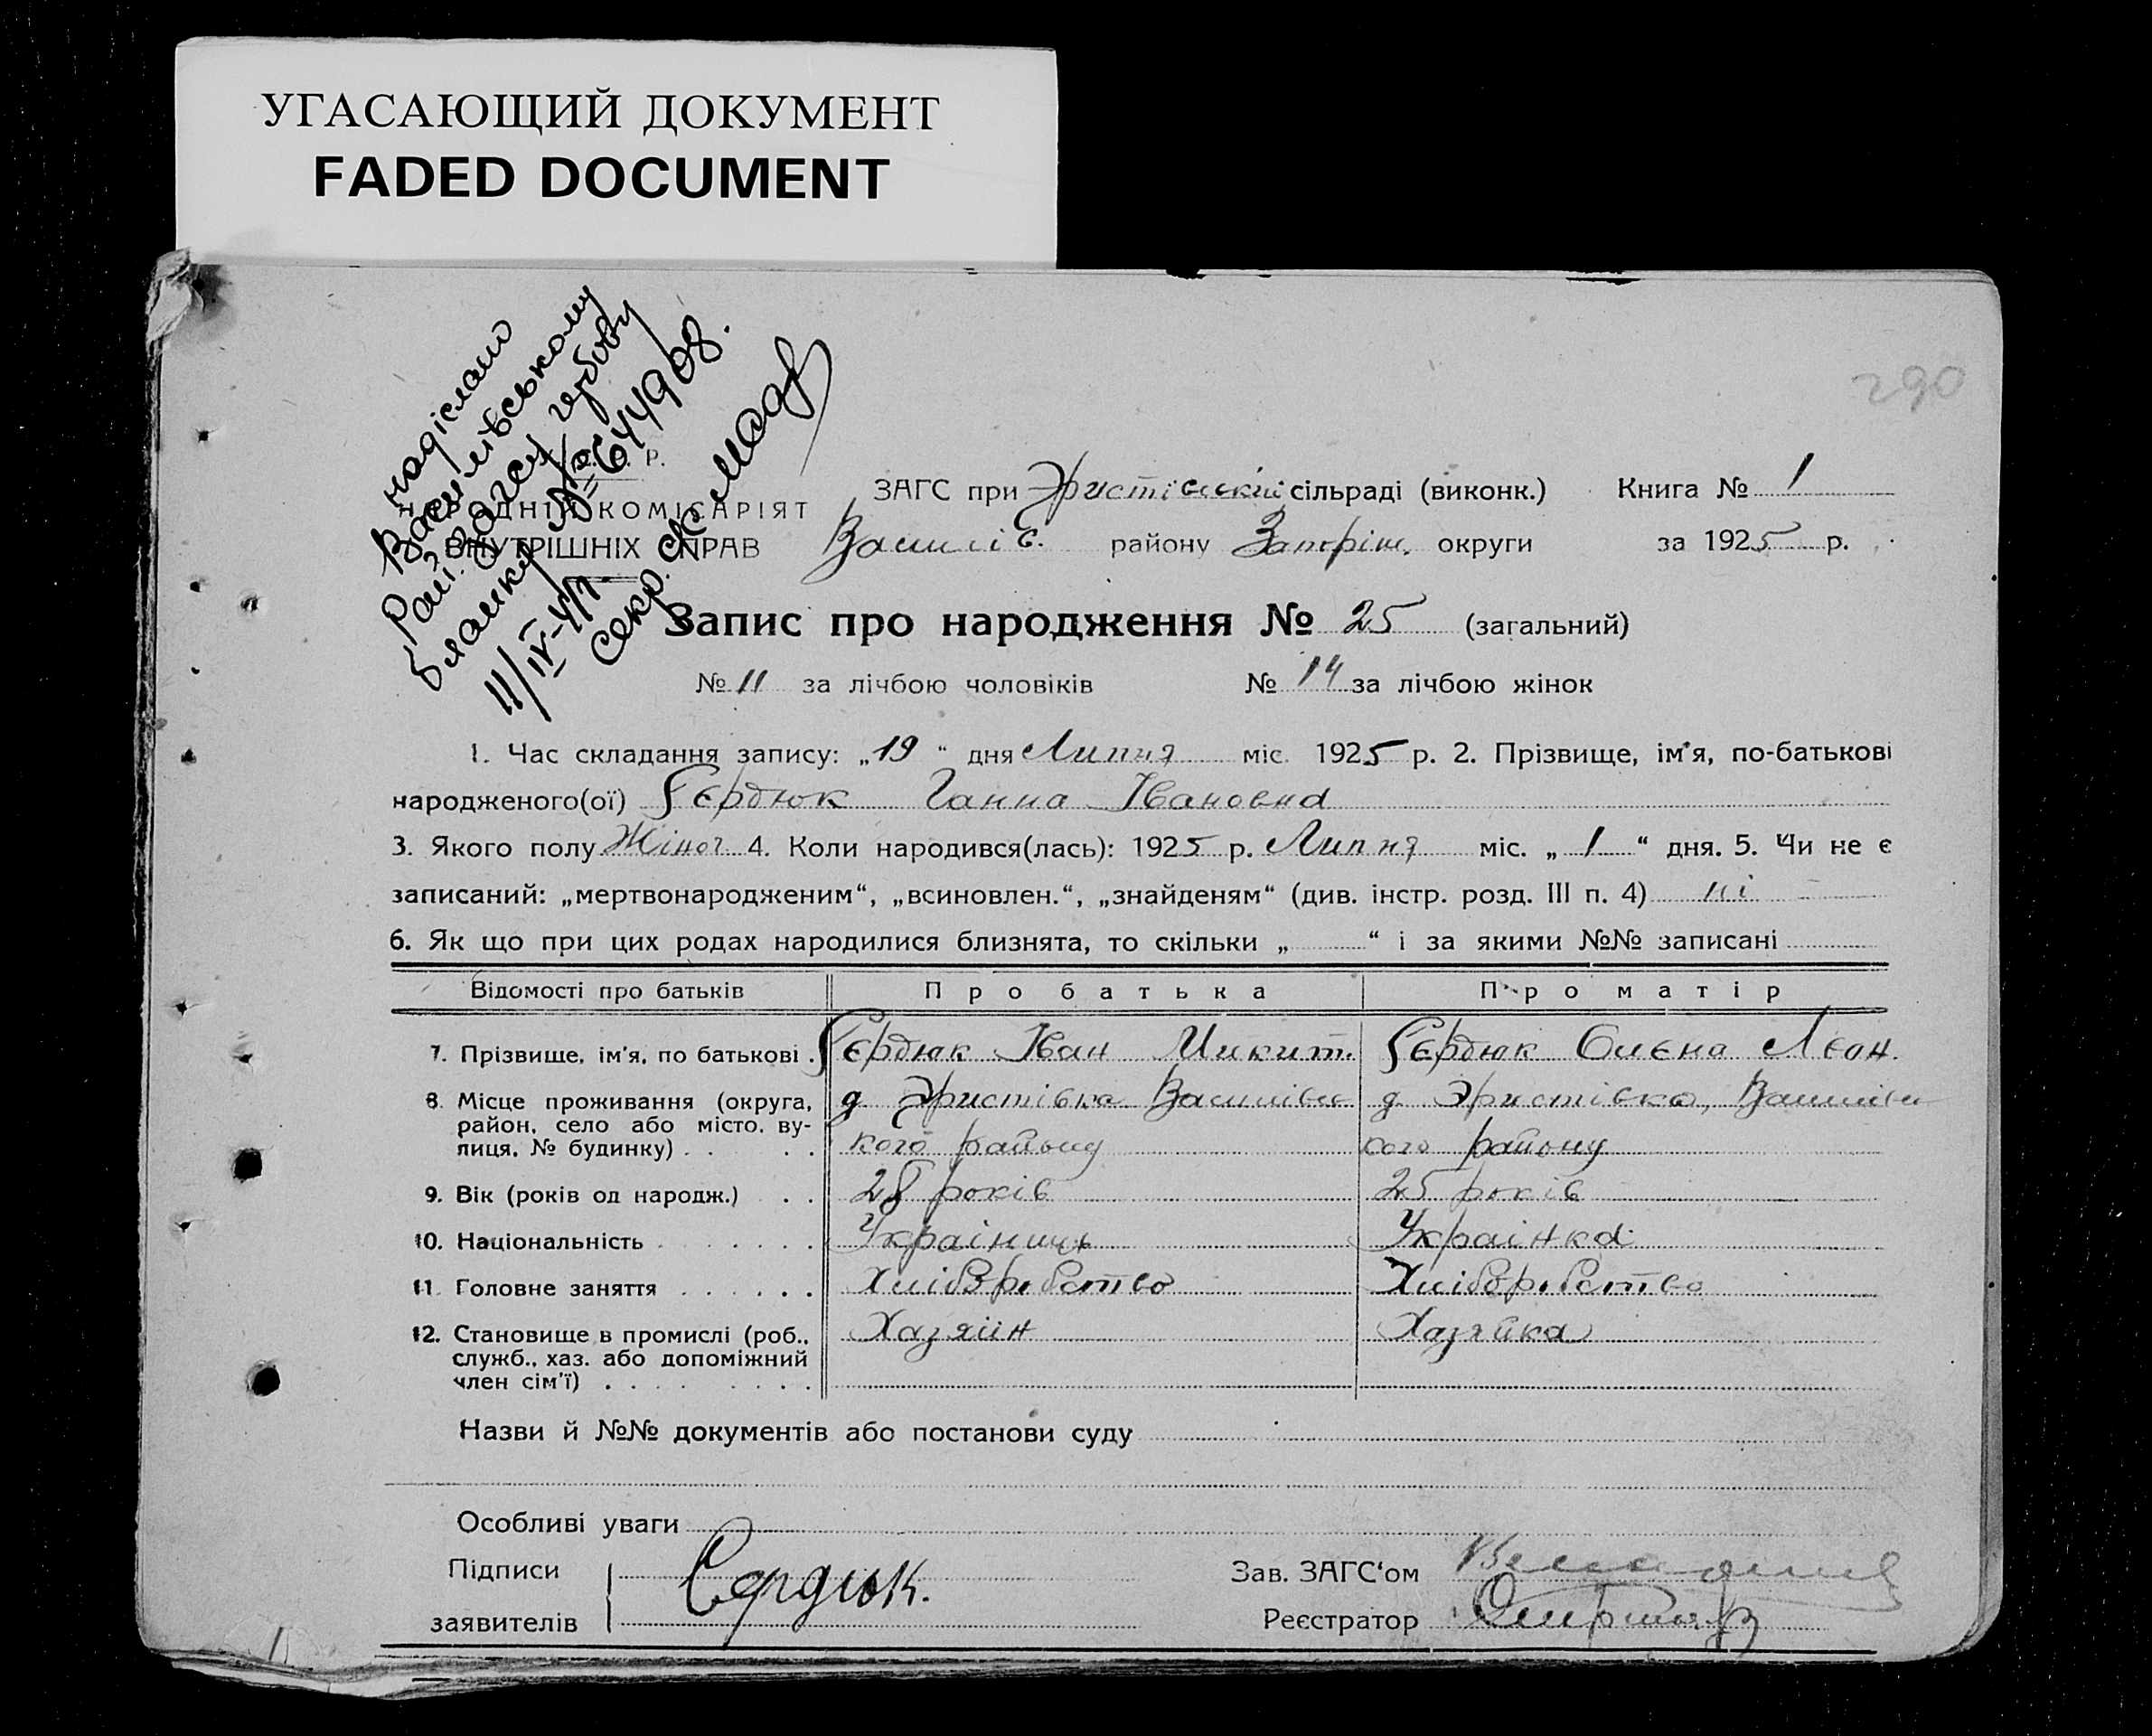 УГАСАЮЩИЙ ДОКУМЕНТ
FADED DOCUMENT
290
надіслано
Василівському
Рай. загсу гербову
бланку № 644908.
11/IV-47 р.
секр.
Р.
НАРОДНІЙ КОМІСАРІЯТ
ВНУТРІШНІХ СПРАВ
ЗАГС при Христівській сільраді (виконк.) Книга № 1
Василів. району Запоріж. округи за 1925 р.
Запис про народження № 25 (загальний)
№ 11 за лічбою чоловіків № 14 за лічбою жінок
1. Час складання запису: „19“ дня Липня міс. 1925 р. 2. Прізвище, ім'я, по-батькові
народженого(ої) Сєрдюк Ганна Івановна
3. Якого полу Жіноч 4. Коли народився(лась): 1925 р. Липня міс. „1“ дня. 5. Чи не є
записаний: „мертвонародженим“, „всиновлен.“, „знайденям“ (див. інстр. розд. III п. 4) ні
6. Як що при цих родах народилися близнята, то скільки „ “ і за якими №№ записані
Відомості про батьків Про батька Про матір
7. Прізвище, ім'я, по батькові . Сєрдюк Іван Микит. Сєрдюк Олєна Лєон.
8. Місце проживання (округа, д Христівка Василівс д Христівка, Василівс
район, село або місто, ву-
лиця, № будинку) . . . . кого району кого району
9. Вік (років од народж.) . . 28 років 25 років
10. Національність . . . . . . . Українець Українка
11. Головне заняття . . . . . . Хліборобство Хліборобство
12. Становище в промислі (роб., Хазяїн Хазяйка
служб., хаз. або допоміжний
член сім'ї) . . . . . . . . .
Назви й №№ документів або постанови суду
Особливі уваги
Підписи
заявителів
Сердюк.
Зав. ЗАГС'ом
Реєстратор